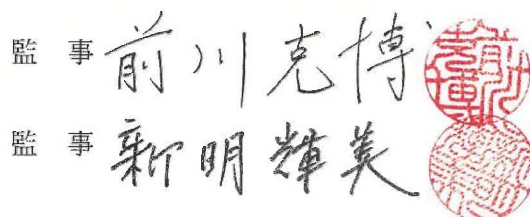 監事 前川克博
監事 新明輝美